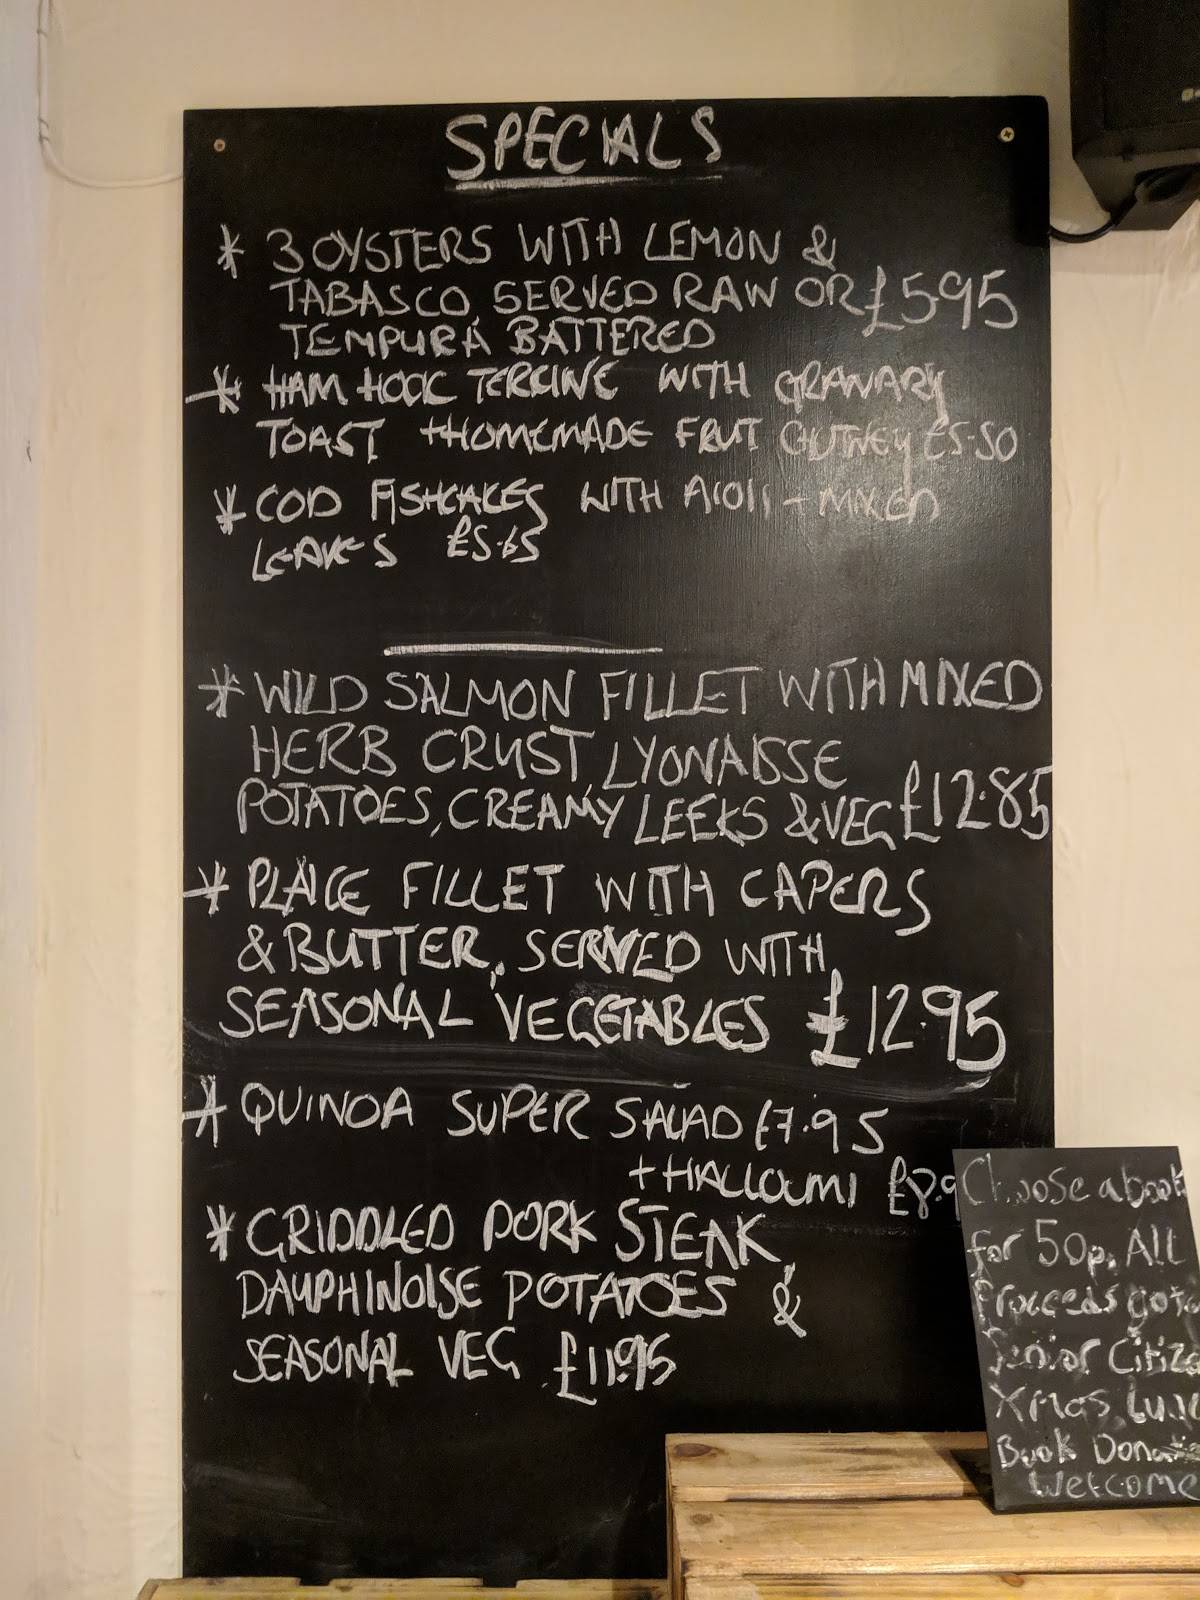 SPECIALS
* 3 OYSTERS WITH LEMON &
TABASCO, SERVED RAW OR £5.95
TEMPURA BATTERED
* HAM HOCK TERRINE WITH GRANARY
TOAST + HOMEMADE FRUIT CHUTNEY £5.50
* COD FISHCAKES WITH AIOLI + MIXED
LEAVES £5.65
* WILD SALMON FILLET WITH MIXED
HERB CRUST, LYONAISSE
POTATOES, CREAMY LEEKS & VEG £12.85
* PLAICE FILLET WITH CAPERS
& BUTTER, SERVED WITH
SEASONAL VEGETABLES £12.95
* QUINOA SUPER SALAD £7.95
+ HALLOUMI £8.9
* GRIDDLED PORK STEAK,
DAUPHINOISE POTATOES &
SEASONAL VEG £11.95
Choose a book
for 50p. All
Proceeds go to
Senior Citize
Xmas Lunc
Book Donatio
Welcome